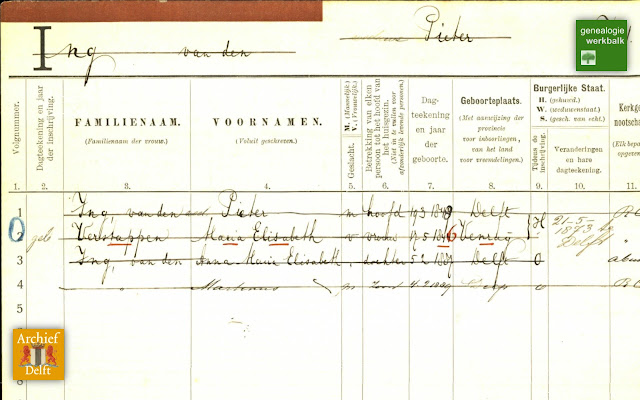 genealogie
werkbalk
Ing van den Pieter
Volgnummer.
Dagteekening en jaar der inschrijving.
FAMILIENAAM.
(Familienaam der vrouw.)
VOORNAMEN.
(Voluit geschreven.)
Geslacht. M. (Mannelijk.) V. (Vrouwelijk.)
Betrekking van elken persoon tot het hoofd van het huisgezin.
(Niet in te vullen voor afzonderlijk levende personen.)
Dag-
teekening
en jaar
der
geboorte.
Geboorteplaats.
(Met aanwijzing der
provincie
voor inboorlingen,
van het land
voor vreemdelingen.)
Burgerlijke Staat.
H. (gehuwd.)
W. (weduwenstaat.)
S. (gesch. van echt.)
Tijdens de inschrijving.
Veranderingen
en hare
dagteekening.
Kerkge-
nootscha
(Elk bepa
opge
1. 2. 3. 4. 5. 6. 7. 8. 9. 10.
1 Ing, van den Pieter m hoofd Delft
2 geb Verlstappen Maria Elisabeth v H 21-5-1873 Delft
3 Ing, van den Anna Maria Elisabeth dochter Delft O
4 m zoon
5
6
7
8
Archief
Delft